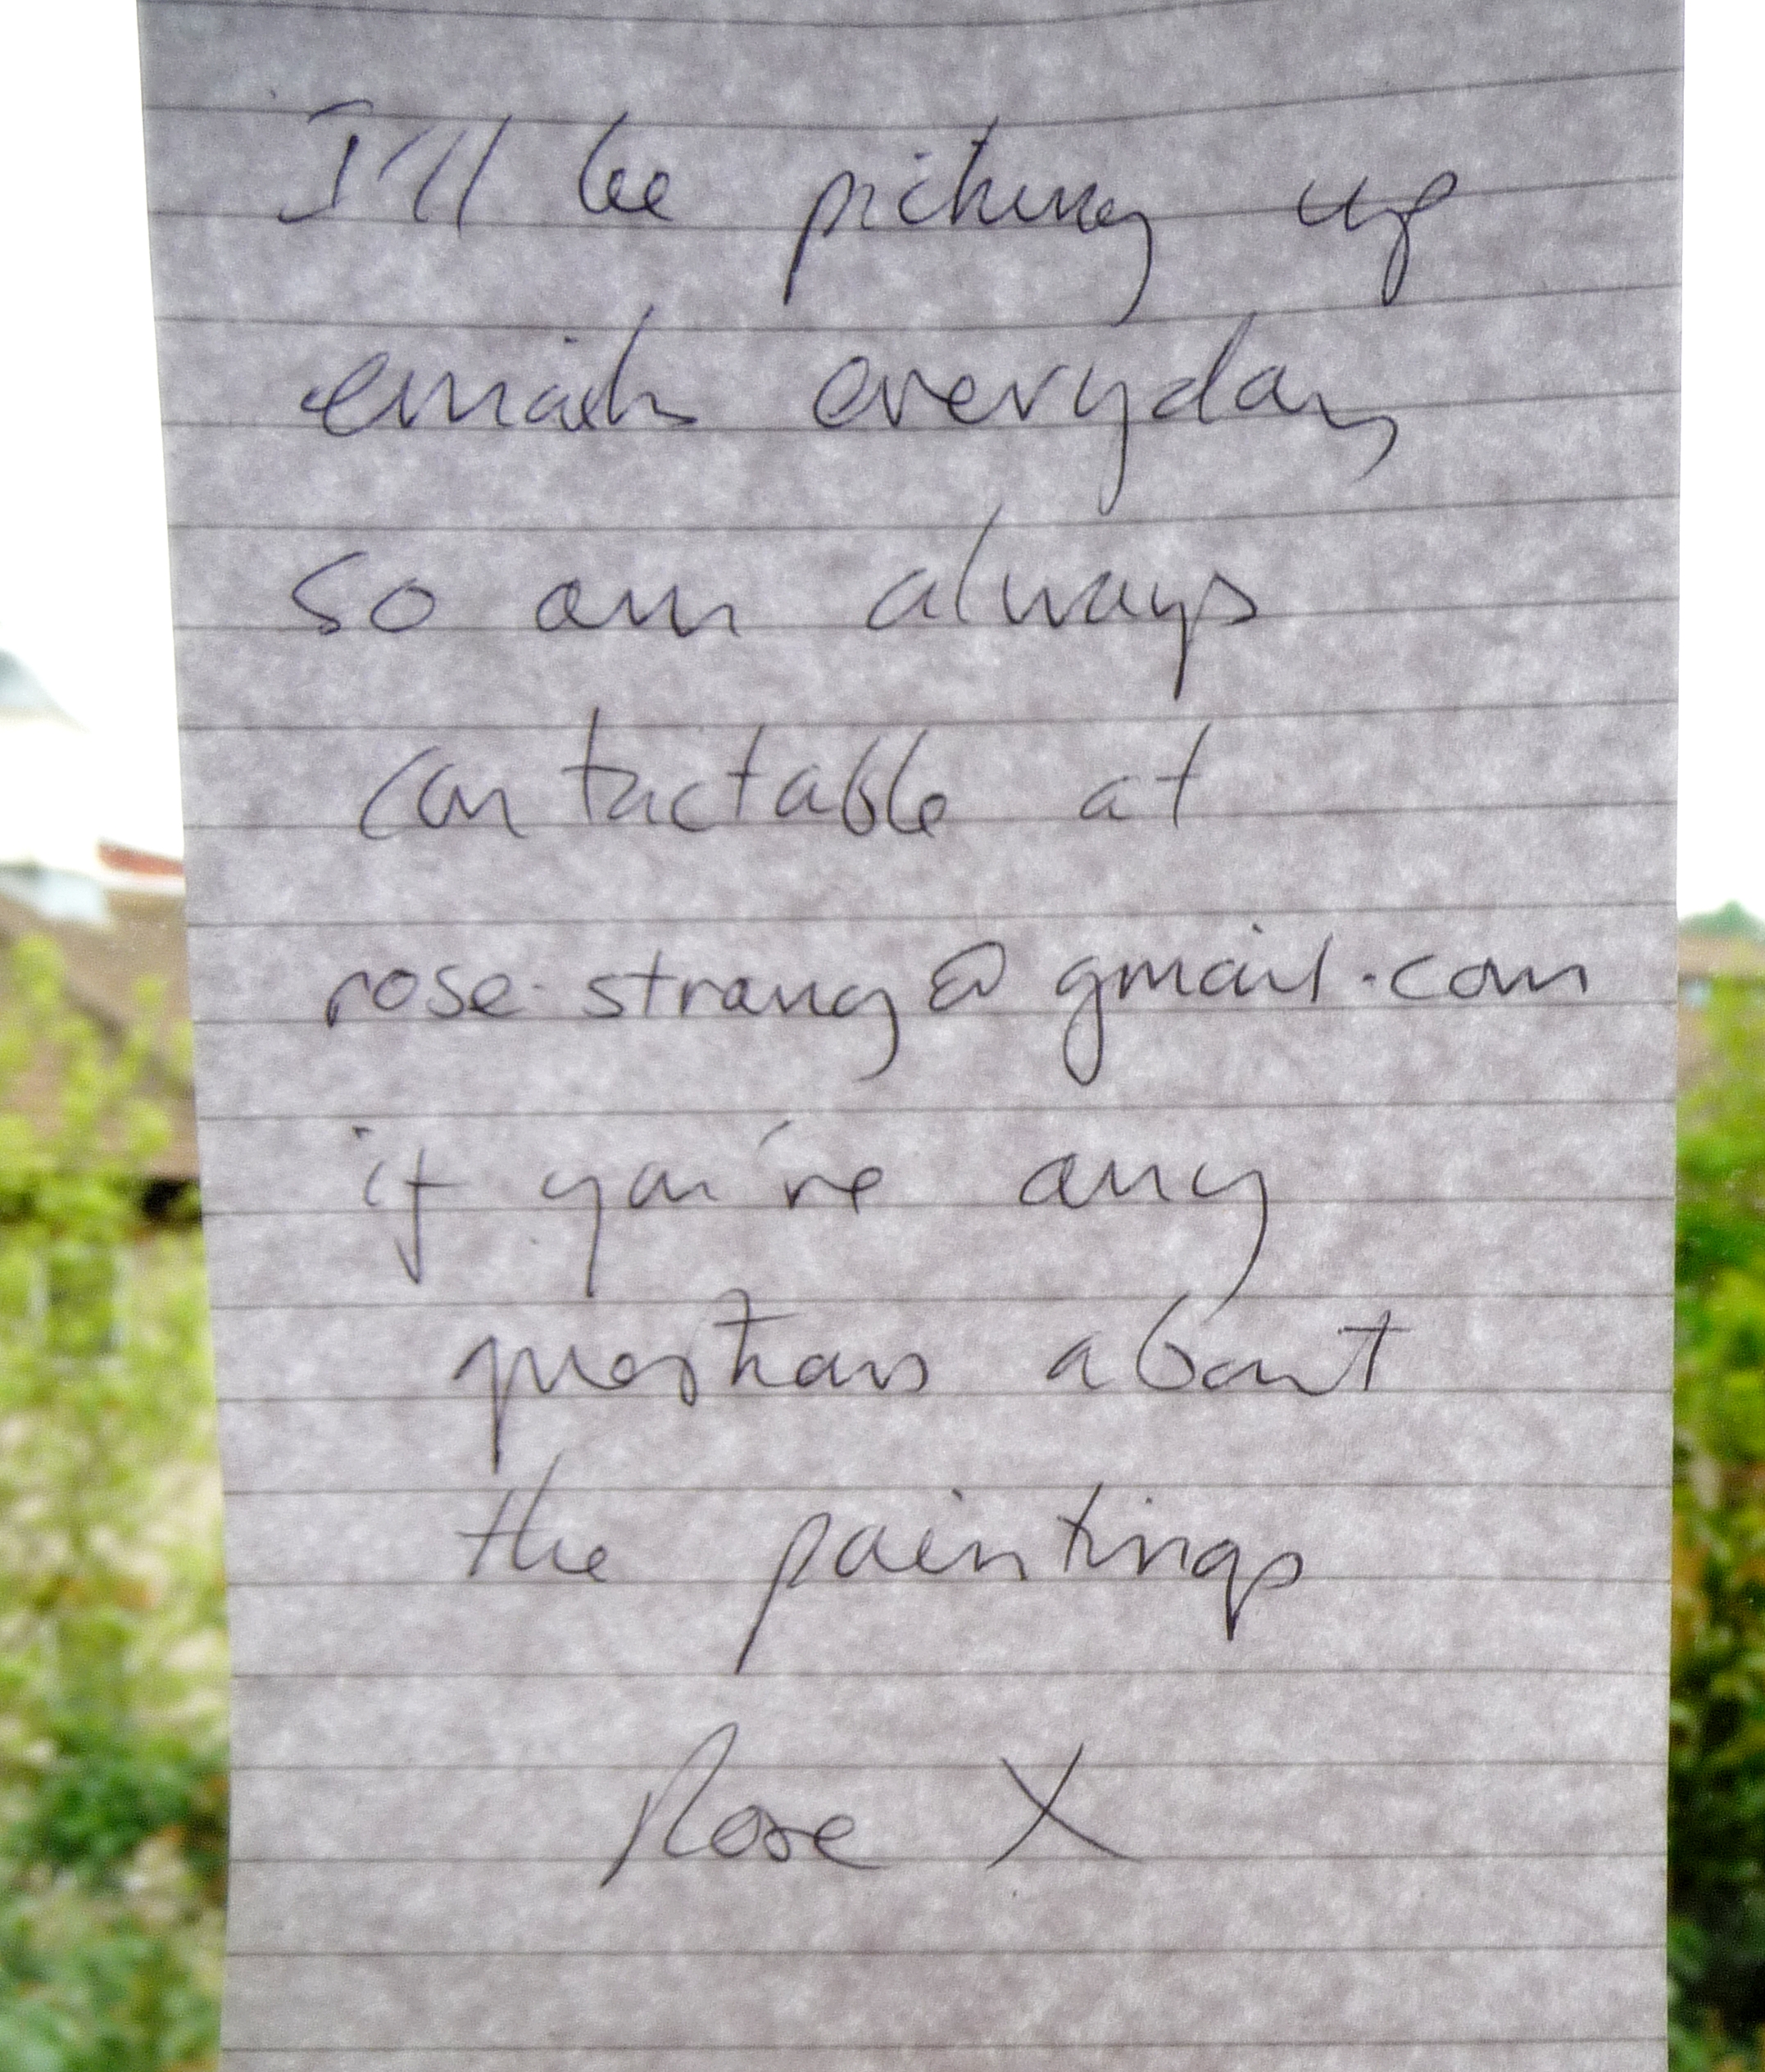 I'll be picking up
emails everyday
so am always
contactable at
rose.strang@gmail.com
if you've any
questions about
the paintings
Rose X